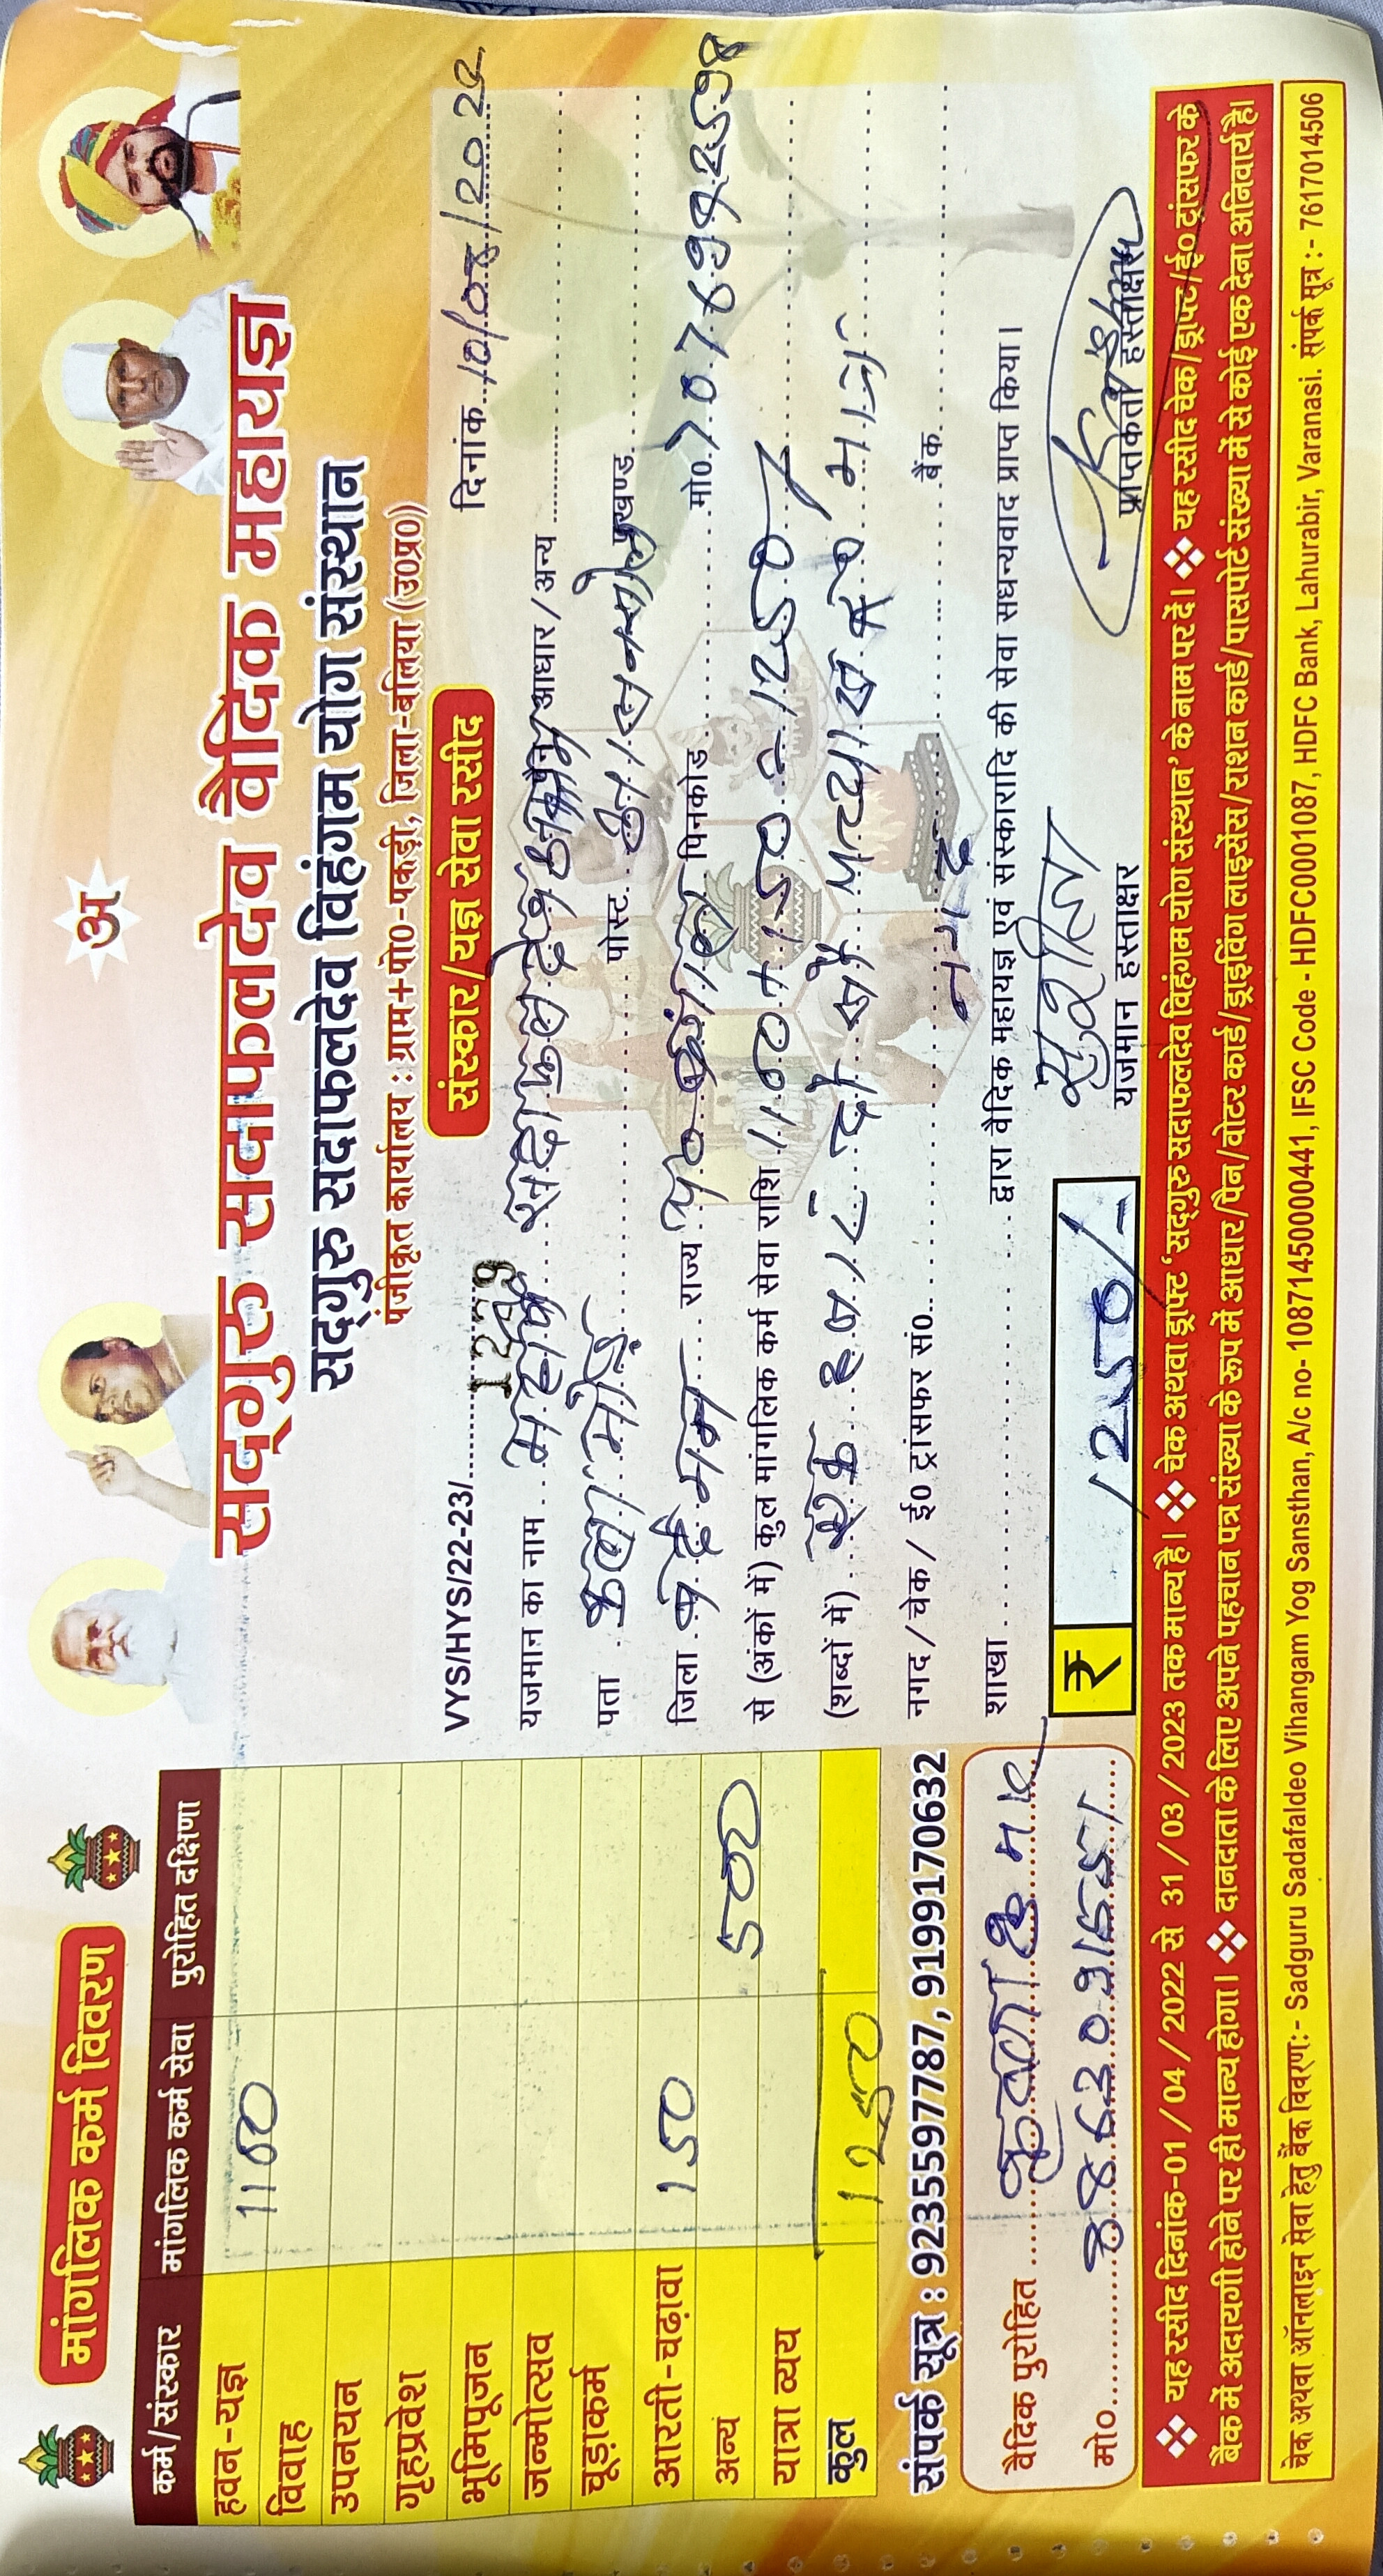 मांगलिक कर्म विवरण
कर्म/संस्कार मांगलिक कर्म सेवा पुरोहित दक्षिणा
हवन-यज्ञ 1100
विवाह
उपनयन
गृहप्रवेश
भूमिपूजन
जन्मोत्सव
चूड़ाकर्म
आरती-चढ़ावा 150
अन्य 500
यात्रा व्यय
कुल 1250
संपर्क सूत्र : 9235597787, 9199170632
वैदिक पुरोहित कुमार
मो०
अ
सद्गुरु सदाफलदेव वैदिक महायज्ञ
सद्गुरु सदाफलदेव विहंगम योग संस्थान
पंजीकृत कार्यालय : ग्राम+पो०-पकड़ी, जिला-बलिया (उ०प्र०)
संस्कार/यज्ञ सेवा रसीद
VYS/HYS/22-23/ दिनांक
यजमान का नाम महर्षि सदाफल देव आश्रम आधार/अन्य
पता पोस्ट प्रखण्ड
जिला राज्य प० बंगाल पिनकोड मो०
से (अंकों में) कुल मांगलिक कर्म सेवा राशि 1100+150=1250/
(शब्दों में) एक हजार दो सौ पच्चास रु० मात्र
नगद/चेक/ ई० ट्रांसफर सं० नगद बैंक
शाखा द्वारा वैदिक महायज्ञ एवं संस्कारादि की सेवा सधन्यवाद प्राप्त किया।
₹ 1250/-
सुशील
यजमान हस्ताक्षर प्राप्तकर्ता हस्ताक्षर
❖ यह रसीद दिनांक-01/04/2022 से 31/03/2023 तक मान्य है। ❖ चेक अथवा ड्राफ्ट 'सद्गुरु सदाफलदेव विहंगम योग संस्थान' के नाम पर दें। ❖ यह रसीद चेक/ड्राफ्ट/ई० ट्रांसफर के
बैंक में अदायगी होने पर ही मान्य होगा। ❖ दानदाता के लिए अपने पहचान पत्र संख्या के रूप में आधार/पैन/वोटर कार्ड/ड्राइविंग लाइसेंस/राशन कार्ड/पासपोर्ट संख्या में से कोई एक देना अनिवार्य है।
चेक अथवा ऑनलाइन सेवा हेतु बैंक विवरण:- Sadguru Sadafaldeo Vihangam Yog Sansthan, A/c no- 10871450000441, IFSC Code - HDFC0001087, HDFC Bank, Lahurabir, Varanasi. संपर्क सूत्र :- 7617014506